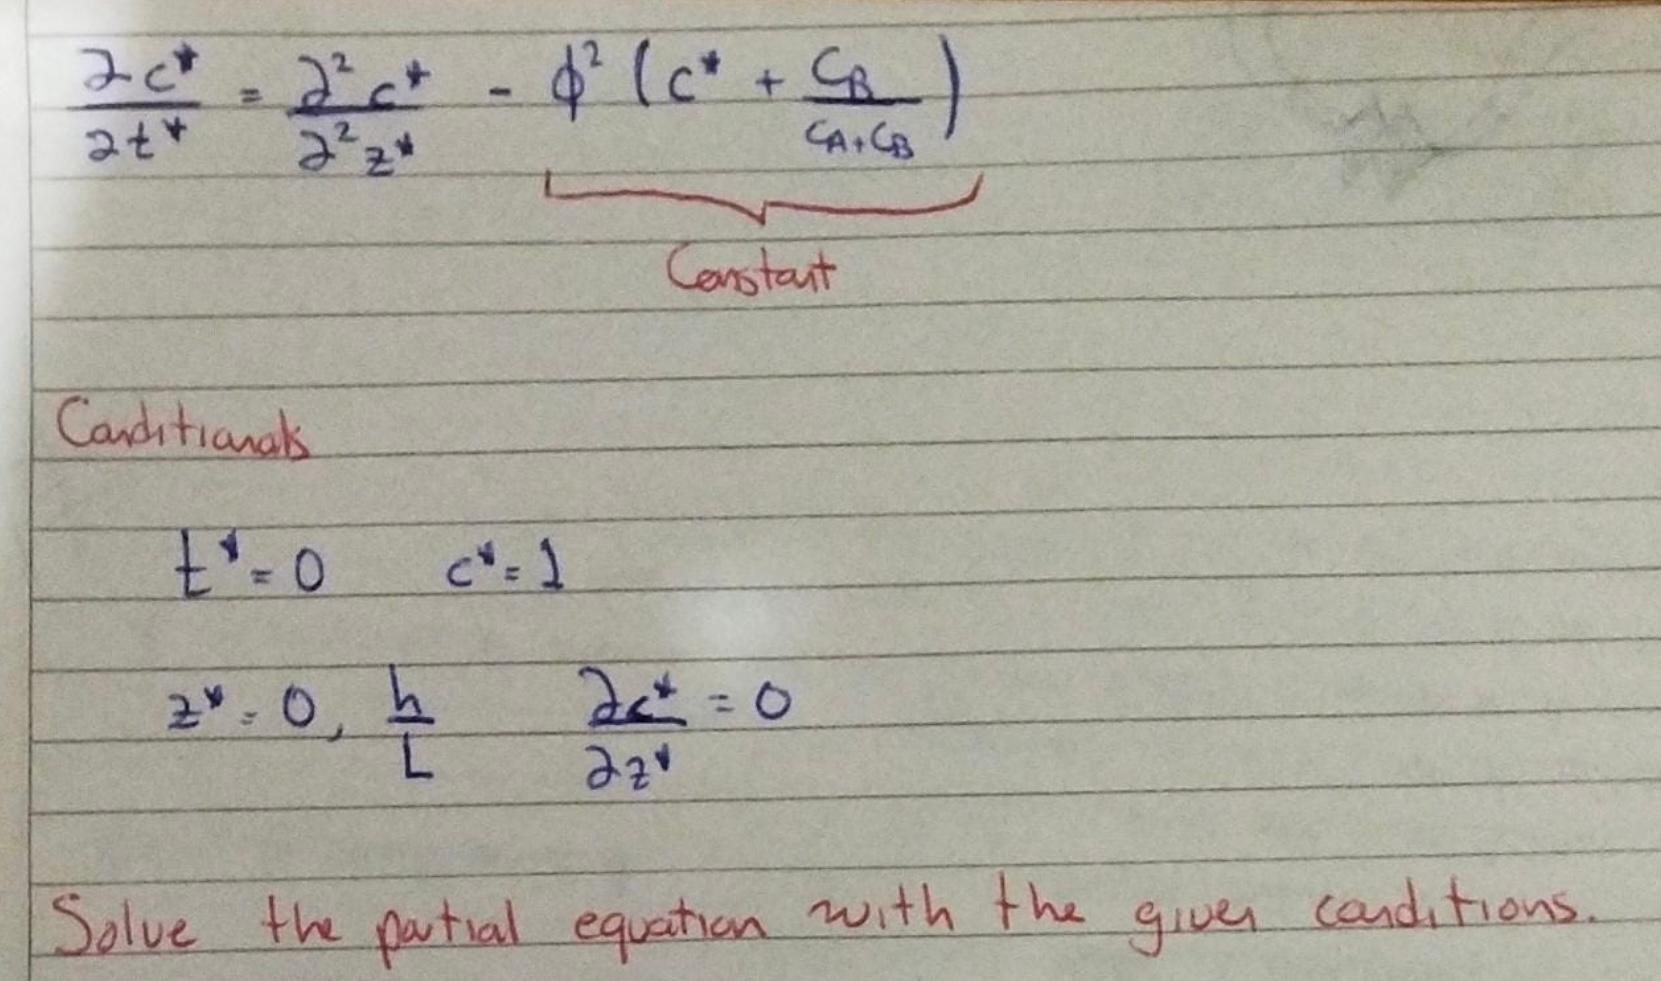 ∂c*/∂t* = ∂²c*/∂²z* - ϕ² (c* + CB/CA+CB)
Constant
Conditionals
t* = 0 c* = 1
z* = 0, h/L ∂c*/∂z* = 0
Solve the partial equation with the given conditions.